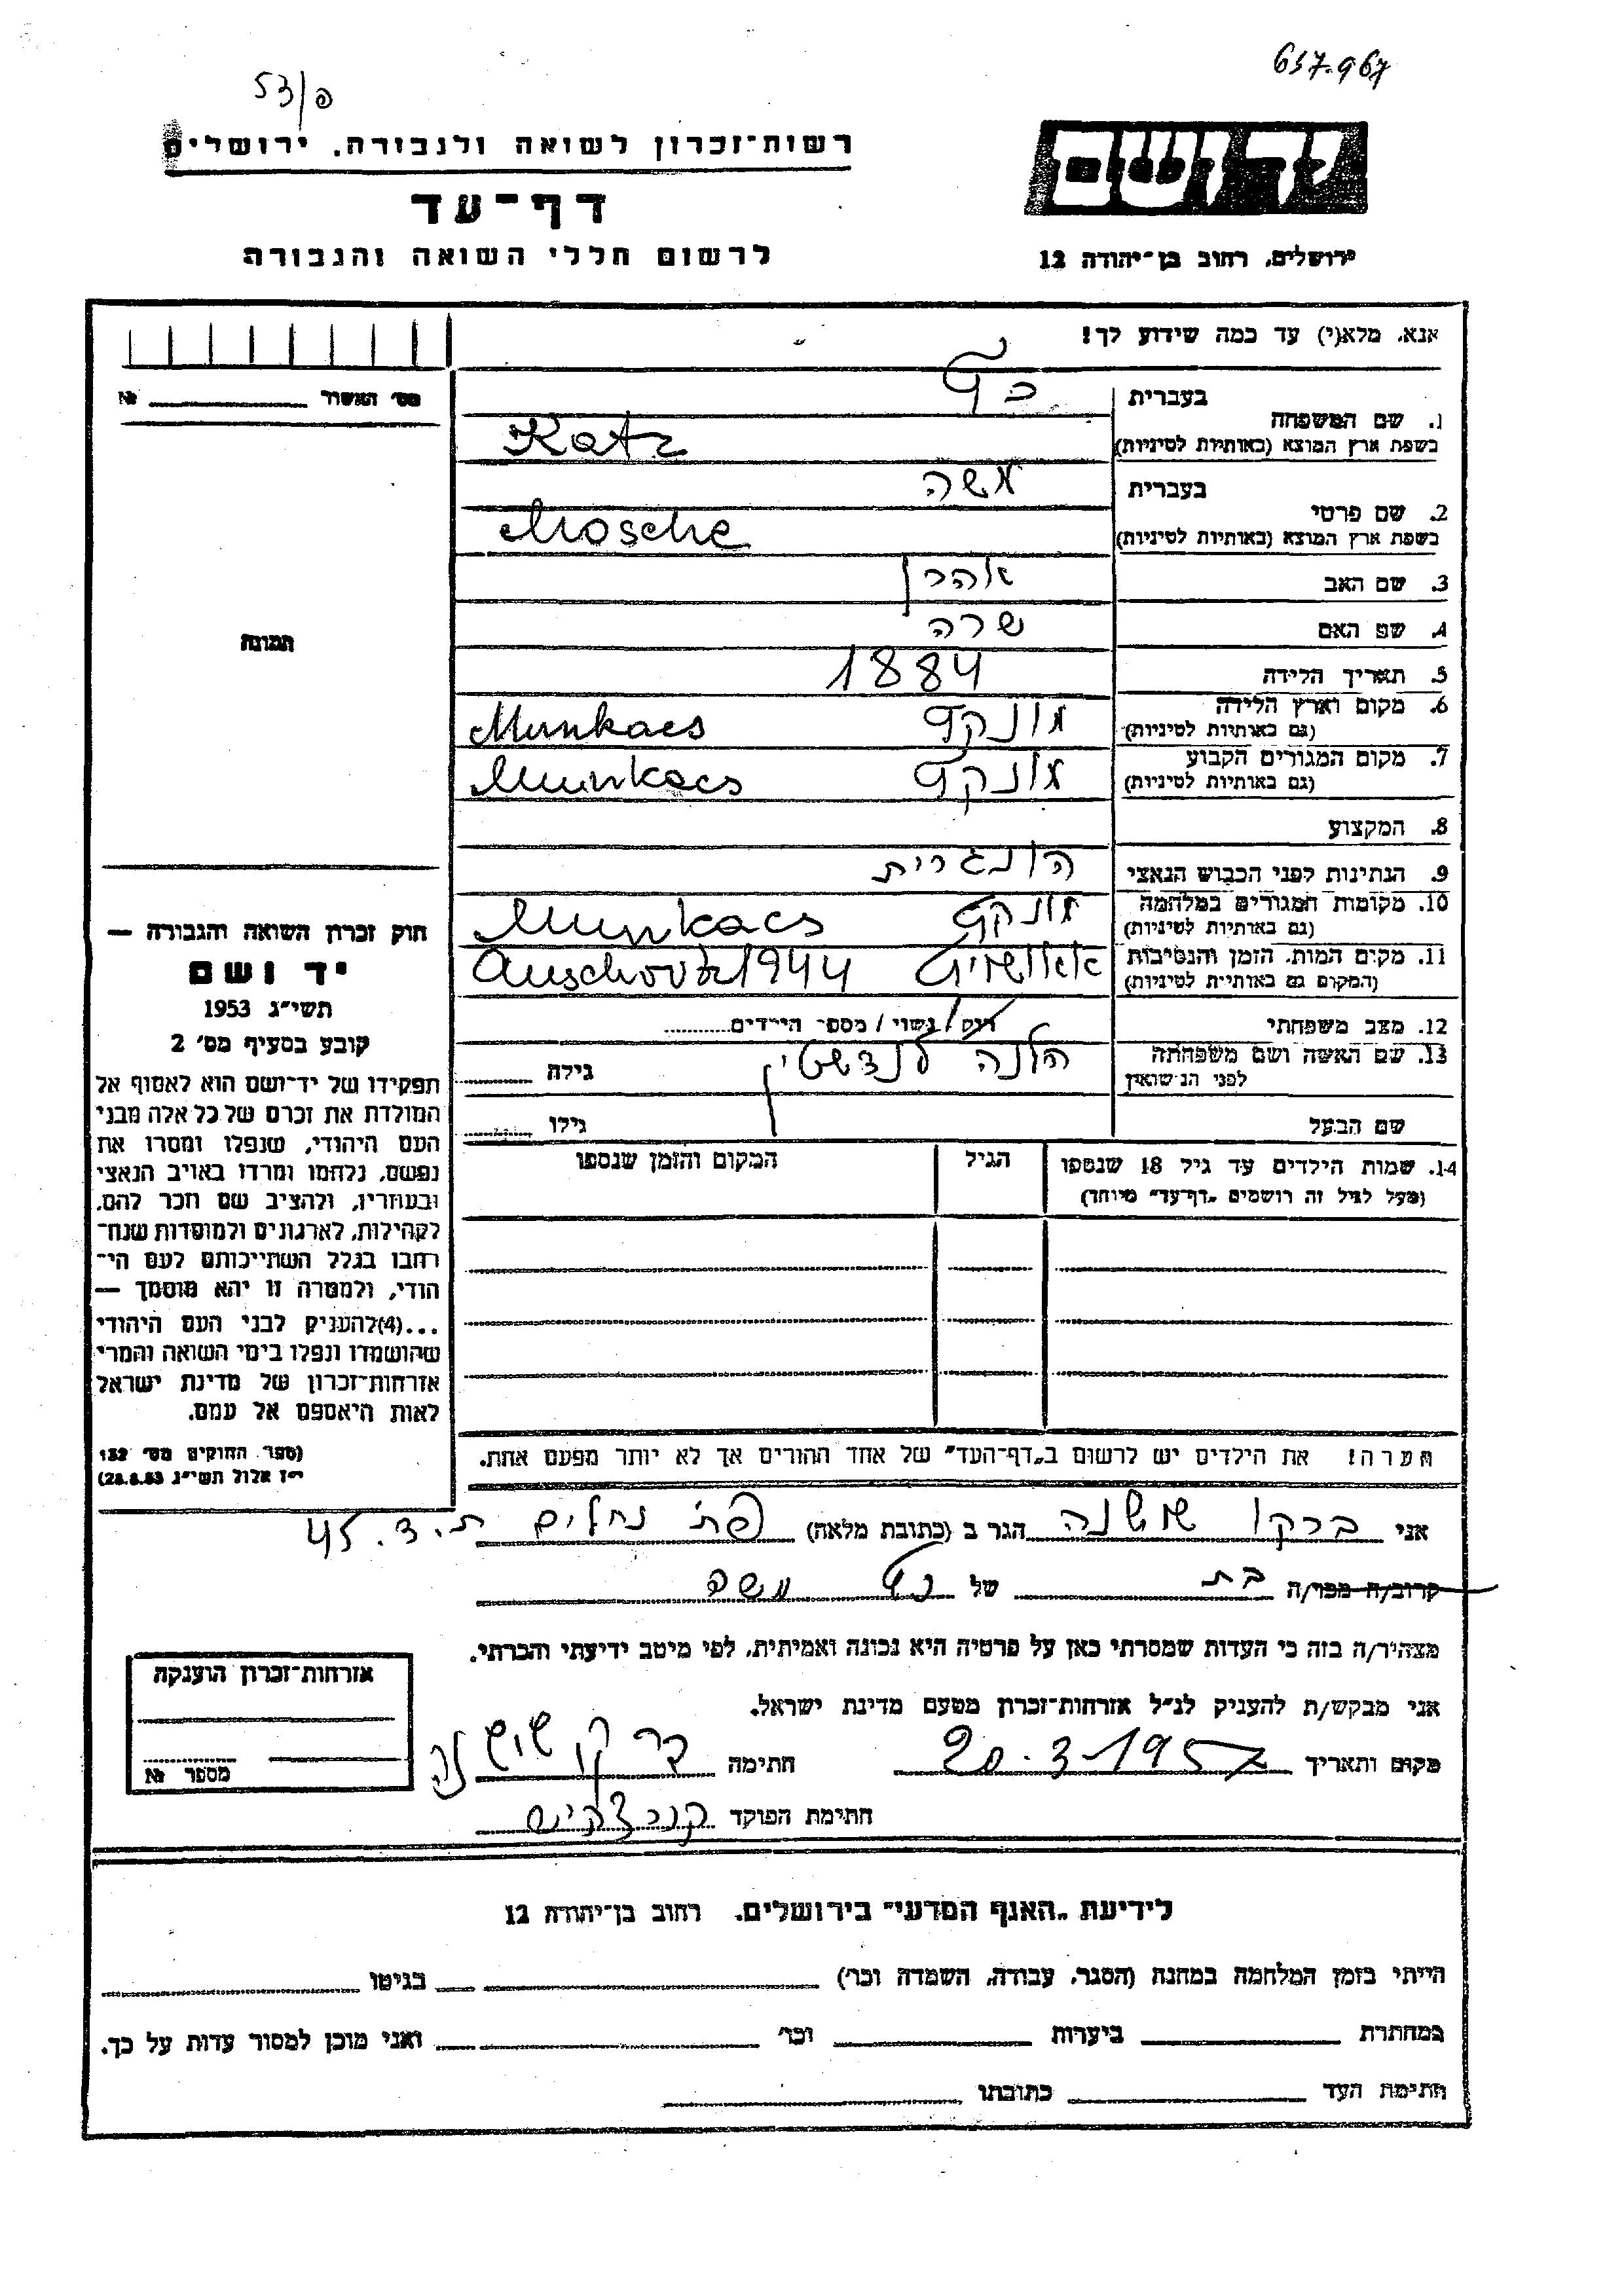 637.967
53/פ
יד ושם
רשות־זכרון לשואה ולגבורה. ירושלים
דף־עד
ירושלים, רחוב בן־יהודה 12
לרשום חללי השואה והגבורה
אנא, מלא(י) עד כמה שידוע לך!
מס׳ האשור № 
1. שם המשפחה
בעברית כץ
בשפת ארץ המוצא (באותיות לטיניות) Katz
2. שם פרטי
בעברית משה
בשפת ארץ המוצא (באותיות לטיניות) Mosche
3. שם האב אהרן
4. שם האם שרה
5. תאריך הלידה 1884
6. מקום וארץ הלידה מונקץ Munkacs
(גם באותיות לטיניות)
7. מקום המגורים הקבוע מונקץ Munkacs
(גם באותיות לטיניות)
8. המקצוע
9. הנתינות לפני הכבוש הנאצי הונגרית
10. מקומות המגורים במלחמה מונקץ Munkacs
(גם באותיות לטיניות)
11. מקום המות, הזמן והנסיבות 1944
(המקום גם באותיות לטיניות)
12. מצב משפחתי רווק/נשוי/מספר הילדים
13. שם האשה ושם משפחתה הלנה לנדשטין גילה
לפני הנישואין
שם הבעל גילו
14. שמות הילדים עד גיל 18 שנספו הגיל המקום והזמן שנספו
(מעל לגיל זה רושמים „דף־עד״ מיוחד)
הערה! את הילדים יש לרשום ב„דף־העד״ של אחד ההורים אך לא יותר מפעם אחת.
תמונה
חוק זכרון השואה והגבורה —
יד ושם
תשי״ג 1953
קובע בסעיף מס׳ 2
תפקידו של יד־ושם הוא לאסוף אל
המולדת את זכרם של כל אלה מבני
העם היהודי, שנפלו ומסרו את
נפשם, נלחמו ומרדו באויב הנאצי
ובעוזריו, ולהציב שם וזכר להם,
לקהילות, לארגונים ולמוסדות שנח־
רבו בגלל השתייכותם לעם הי־
הודי, ולמטרה זו יהא מוסמך —
...(4)להעניק לבני העם היהודי
שהושמדו ונפלו בימי השואה והמרי
אזרחות־זכרון של מדינת ישראל
לאות היאספם אל עמם.
(ספר החוקים מס׳ 132
י״ז אלול תשי״ג 28.8.53)
אני ברקו שושנה הגר ב (כתובת מלאה) פת׳ נחלים ת.ד. 45
קרוב/ה מכר/ה בת של כץ משה
מצהיר/ה בזה כי העדות שמסרתי כאן על פרטיה היא נכונה ואמיתית, לפי מיטב ידיעתי והכרתי.
אני מבקש/ת להעניק לנ״ל אזרחות־זכרון מטעם מדינת ישראל.
מקום ותאריך 20-3-1957 חתימה ברקו שושנה
חתימת הפוקד
אזרחות־זכרון הוענקה
מספר №
לידיעת „האגף המדעי״ בירושלים. רחוב בן־יהודה 12
הייתי בזמן המלחמה במחנה (הסגר, עבודה, השמדה וכו׳) בגיטו
במחתרת ביערות וכו׳ ואני מוכן למסור עדות על כך.
חתימת העד כתובתו